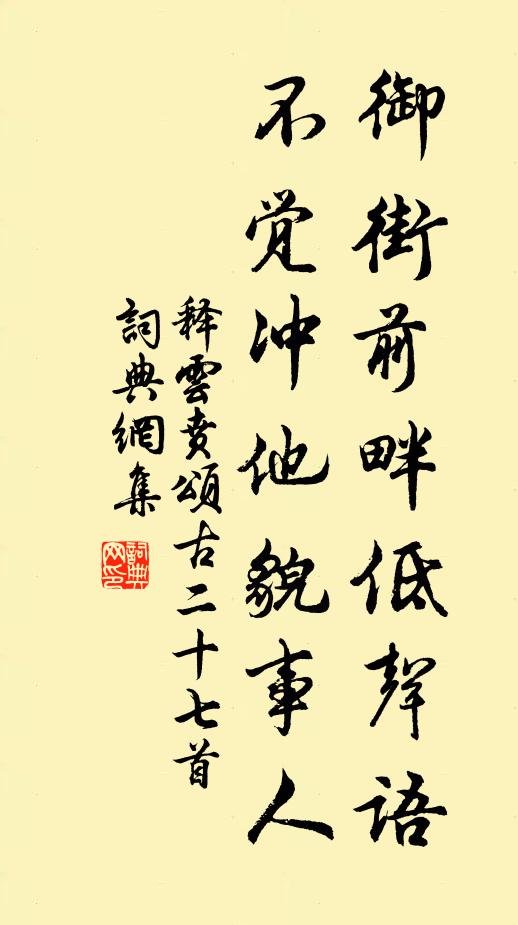 御街前畔低聲語
不觉冲他貌事人
释雲賁頌古二十七首
詞典網集
詞典网印